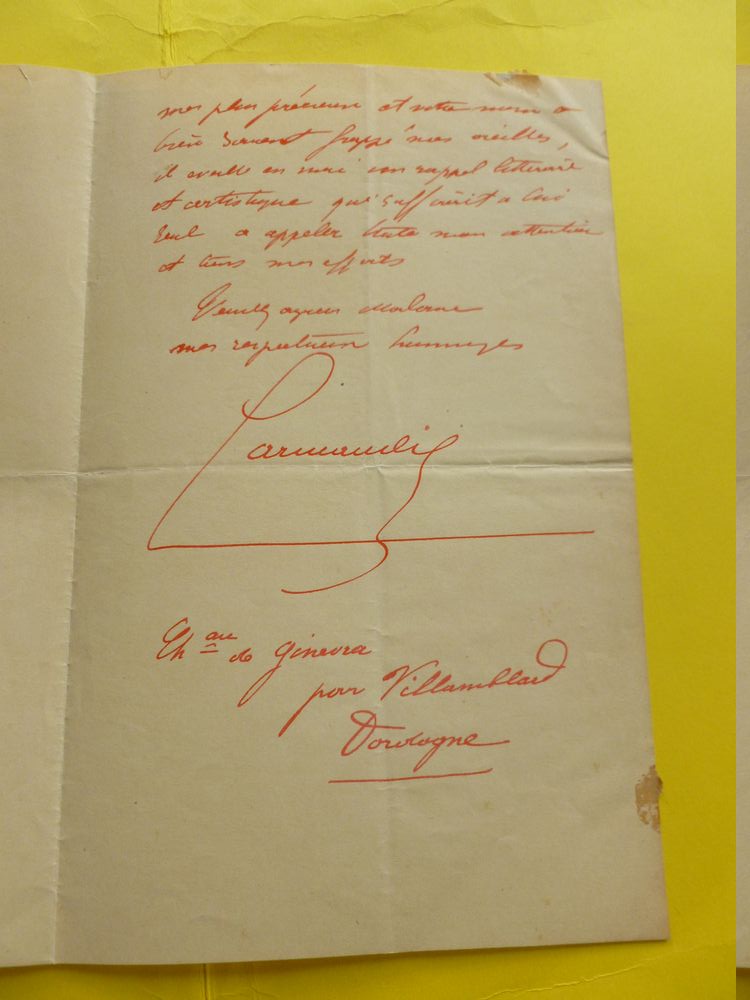 mes plus précieux et votre nom a
bien souvent frappé mes oreilles,
il éveille en moi un rappel littéraire
et artistique qui suffirait a lui
seul a appeler toute mon attention
et tous mes efforts
Veuillez agréer Madame
mes respectueux hommages
Larmandie
Ch au de Ginevra
pour Villamblard
Dordogne